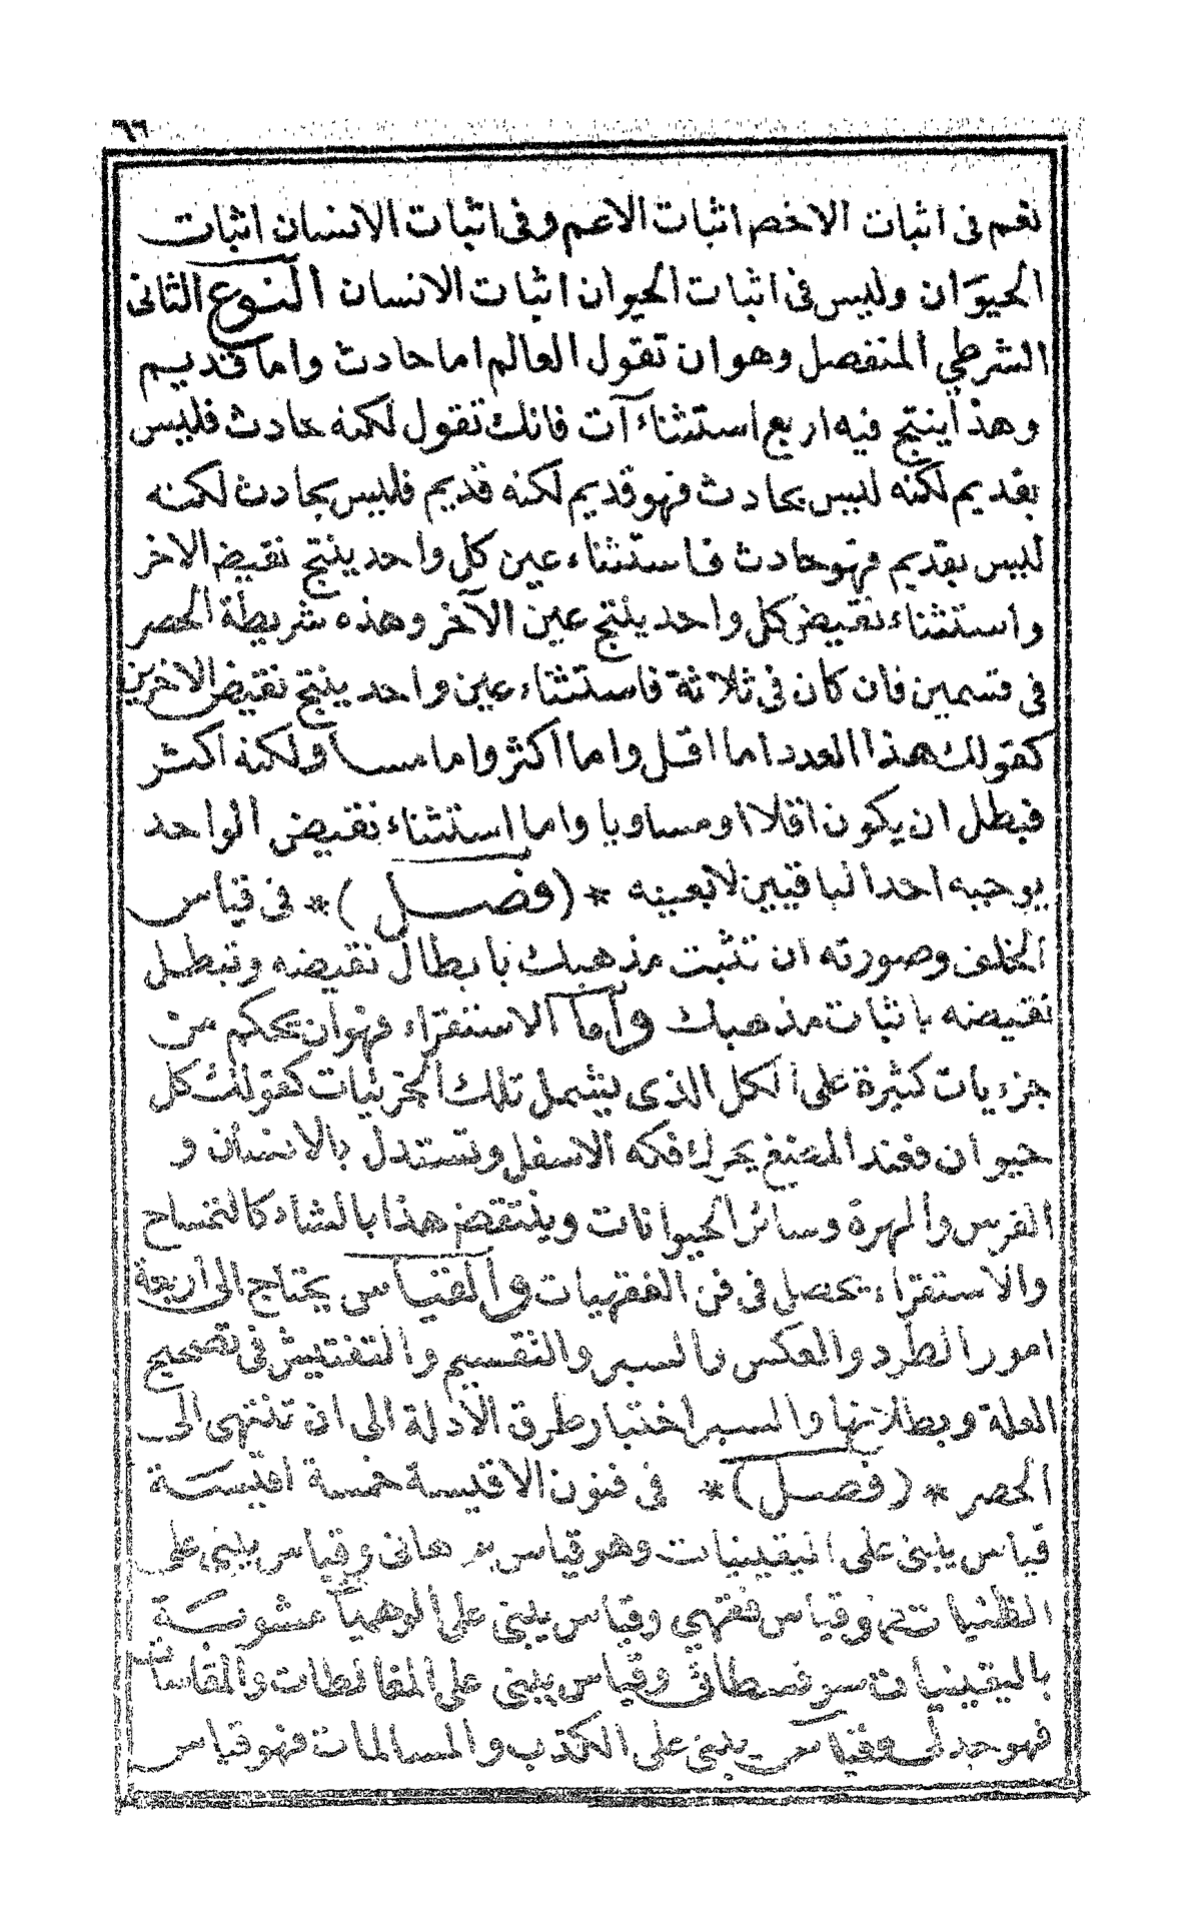 ٦٦
نعم فى اثبات الاخص اثبات الاعم وفى اثبات الانسان اثبات
الحيوان وليس فى اثبات الحيوان اثبات الانسان النوع الثانى
الشرطي المنفصل وهو ان تقول العالم اما حادث واما قديم
وهذا ينتج فيه اربع استثناآت فانك تقول لكنه حادث فليس
بقديم لكنه ليس بحادث فهو قديم لكنه قديم فليس بحادث لكنه
ليس بقديم فهو حادث فاستثناء عين كل واحد ينتج نقيض الاخر
واستثناء نقيض كل واحد ينتج عين الآخر وهذه شريطة الحصر
فى قسمين فان كان فى ثلاثة فاستثناء عين واحد ينتج نقيض الاخرين
كقولك هذا العدد اما اقل واما اكثر واما مسا ولكنه اكثر
فبطل ان يكون اقلا او مساويا واما استثناء نقيض الواحد
يوجبه احد الباقيين لا بعينه * (فصل) * فى قياس
الخلف وصورته ان تثبت مذهبك بابطال نقيضه وتبطل
نقيضه باثبات مذهبك واما الاستقراء فهو ان يحكم من
جزءيات كثيرة على الكل الذى يشمل تلك الجزئيات كقولك كل
حيوان فعند المضغ يحرك فكه الاسفل وتستدل بالانسان و
الفرس والهرة وسائر الحيوانات وينتقض هذا بالشاء كالتمساح
والاستقراء يحصل فى فن الفقهيات والقياس يحتاج الى اربعة
امور الطرد والعكس والسبر والتقسيم والتفتيش فى تصحيح
العلة وبطلانها والسبر اختبار طرق الادلة الى ان تنتهى الى
الحصر * (فصل) * فى فنون الاقيسة خمسة اقيسة
قياس يبنى على اليقينيات وهو قياس برهانى وقياس يبنى على
الظنيات وقياس فقهي وقياس يبنى على الوهميا
باليقينيات سوفسطاى وقياس يبنى على المغالطات والمقاسات
فهو جدلى وقياس يبنى على الكذب والمسالمات فهو قياس